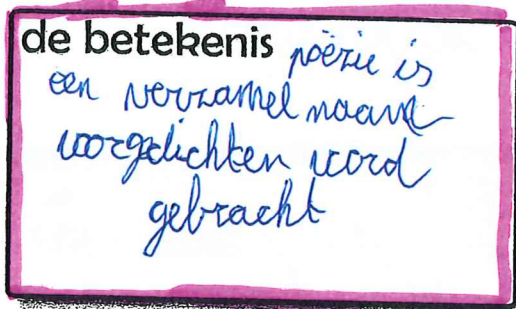 de betekenis poëzie is
een verzamel naam
voorgedichten word
gebracht